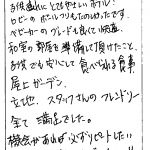 お子様連れにとてもやさしいホテル！
ロビーのボールプールもたのしかったです。
ベビーカーのグレードも良くて快適。
和室の部屋を準備して頂けたこと、
お子でも安心して食べられる食事、
屋上ガーデン、
立地、スタッフさんのフレンドリー
全て満足でした。
機会があれば必ずリピートしたい